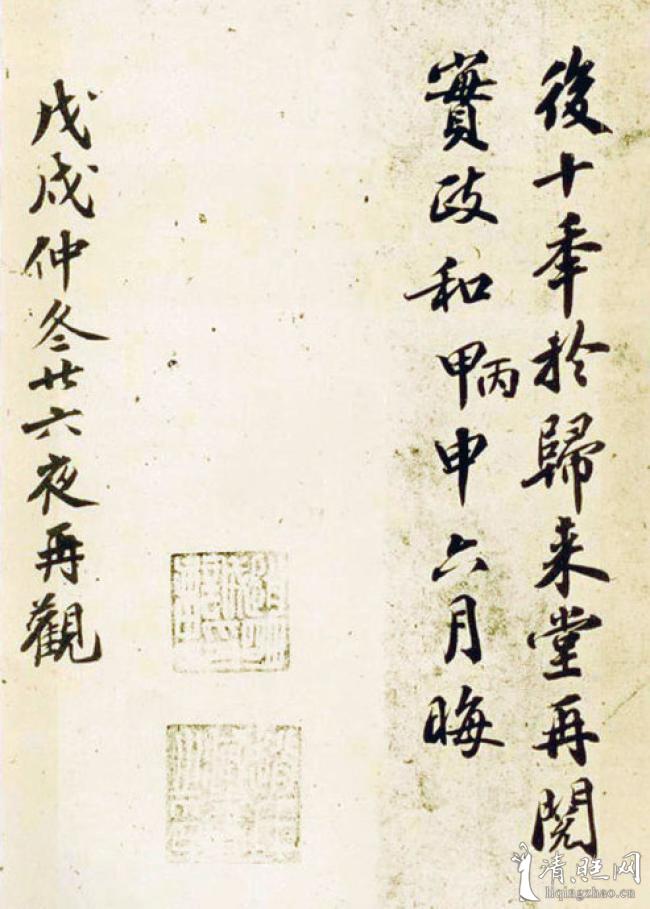 後十年於歸来堂再閱
實政和甲丙申六月晦
戊戌仲冬廿六夜再觀
清旺网
liqingzhao.cn